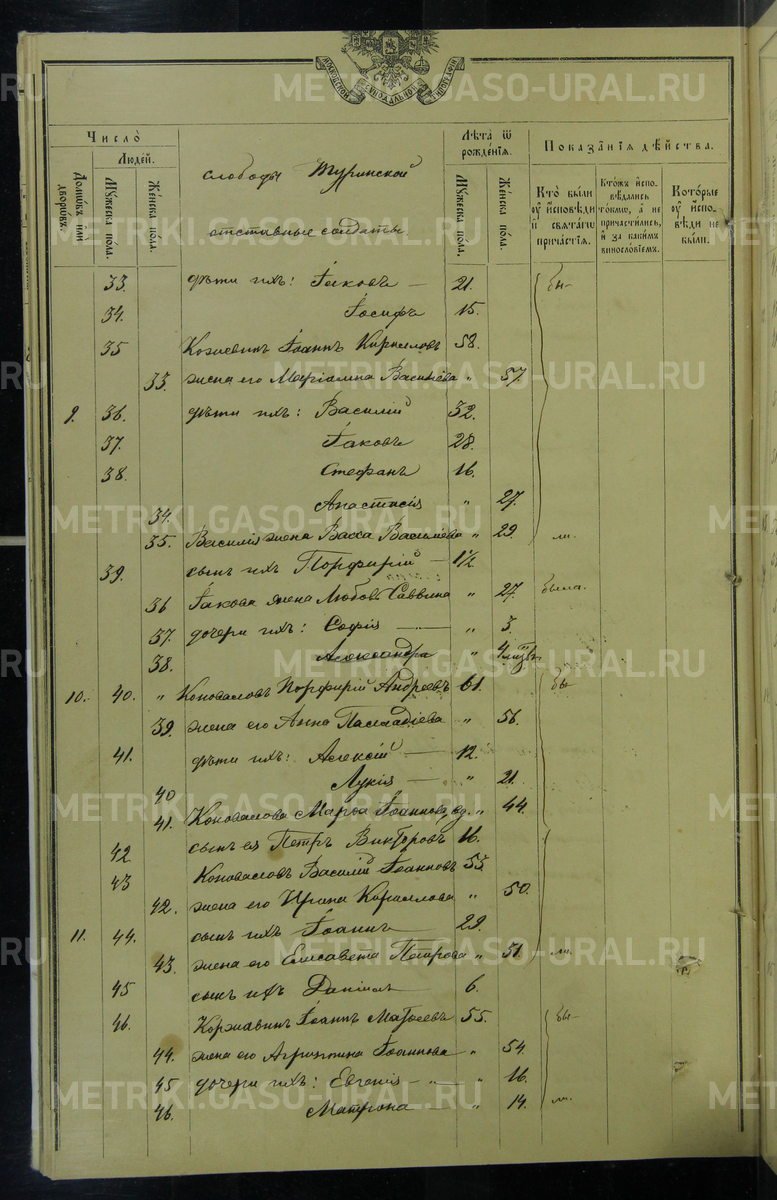 МОСКОВСКОЙ СѴНОДАЛЬНОЙ ТѴПОГРАФІИ
Число̀
Людей.
Домѡвъ или дворѡвъ.
Мꙋжеска по́ла.
Же́нска по́ла.
слободы Туринской
отставные солдаты.
Лѣта ѿ рожде́нїѧ.
Мꙋжеска по́ла.
Же́нска по́ла.
Показа́нїѧ дѣ́йства.
Кто̀ бы́ли ᲂу҆ и҆сповѣди и҆ свѧта́гѡ прича́стїѧ.
Кто́жъ и҆спо-
вѣдались
то́кмѡ, а҆ не
причастились,
и҆ за каки́мъ
винословїемъ.
Кото́рые ᲂу҆ и҆спо-
вѣди не
бы́ли.
33. дѣти ихъ: Іаковъ — 21. бы-
34. Іосифъ 15.
35 Козлевинъ Іоаннъ Кирилловъ 58.
33. жена его Маріамна Васильева " 57.
9. 36. дѣти ихъ: Василій 32.
37. Іаковъ 28.
38. Стефанъ 16.
34. Анастасія " 27.
35. Василія жена Васса Васильева " 29. ли.
39. сынъ ихъ Порфирій — 1½
36 Іакова жена Любовь Саввина " 27. была.
37. дочери ихъ: Софія — " 3.
38. Александра "
10. 40. " Коноваловъ Порфирій Андреевъ 61. бы-
39. жена его Анна Палладіева " 56.
41. дѣти ихъ: Алексій — 12.
40 Лукія — " 21.
41. Коновалова Марѳа Іоаннова, вд. " 44.
42. сынъ ея Петръ Викторовъ 16.
43 Коноваловъ Василій Іоанновъ 55.
42. жена его Ирина Кириллова " 50.
11. 44. сынъ ихъ Іоаннъ — 29.
43. жена его Елисавета Петрова " 31. ли.
45 сынъ ихъ Даніилъ 6.
46. Коржавинъ Іоаннъ Матѳеевъ 55. бы-
44. жена его Агриппина Іоаннова " 54.
45 дочери ихъ: Евгенія - " — " 16.
46. Матрона — " 14. ли.
METRIKI.GASO-URAL.RU